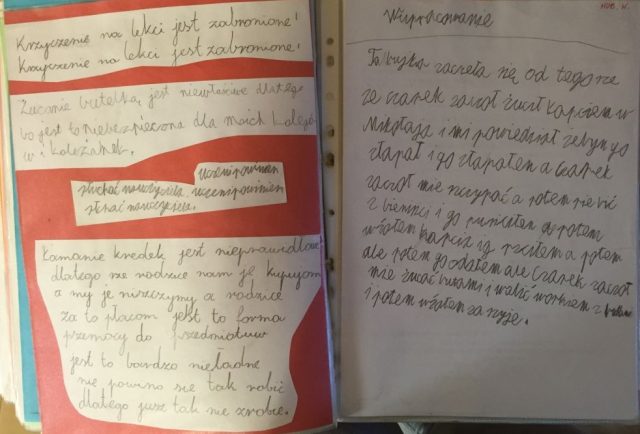 Krzyczenie na lekci jest zabronione!
Krzyczenie na lekci jest zabronione!
Żucanie butelką jest niewłaściwe dlatego
bo jest to niebezpieczona dla moich kolegów
w i koleżanek.
Uczeń powinien
słuchać nauczyciela. uczeń powinien
słuchać nauczyciela.
Łamanie kredek jest nieprawidłowe
dlatego rze rodzice nam je kupujom
a my je niszczymy a rodzice
za to płacom jest to forma
przemocy do przedmiotuw
jest to bardzo nieładne
nie powino się tak robić
dlatego jusz tak nie zrobie.
Wizpracowanie
Ta bujka zaczeła się od tego rze
ze czarek zaczoł żucić kapciem w
Mikołaja i mi powiedział żebym go
złapał i go złapałem a Czarek
zaczoł mie szczypać a potem sie bić
z i go puściłem potem
wziołem kapcia i a potem
ale potem go oddałem ale Czarek zaczoł
mie żucać butami i walić workiem z
i potem wziołem za szyje.